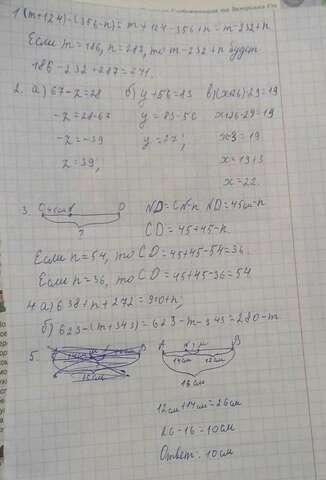 1(m+124)-(356-n)=m+124-356+n=m-232+n
Если m=186, n=287, то m-232+n будет
186-232+287=241.
2. а) 67-z=28 б) y+56=83 в)(x+26)-29=19
-z=28-67 y=83-56 x+26-29=19
-z=-39 y=27; x-3=19
z=39; x=19+3
x=22.
3. C 45см D ND=CN-n ND=45см-n
? CD=45+45-n
Если n=54, то CD=45+45-54=36
Если n=36, то CD=45+45-36=54
4. а) 638+n+272=910+n;
б) 623-(m+343)=623-m-343=280-m
5. A B
14см 12см
16см
12см+14см=26см
26-16=10см
Ответ: 10см